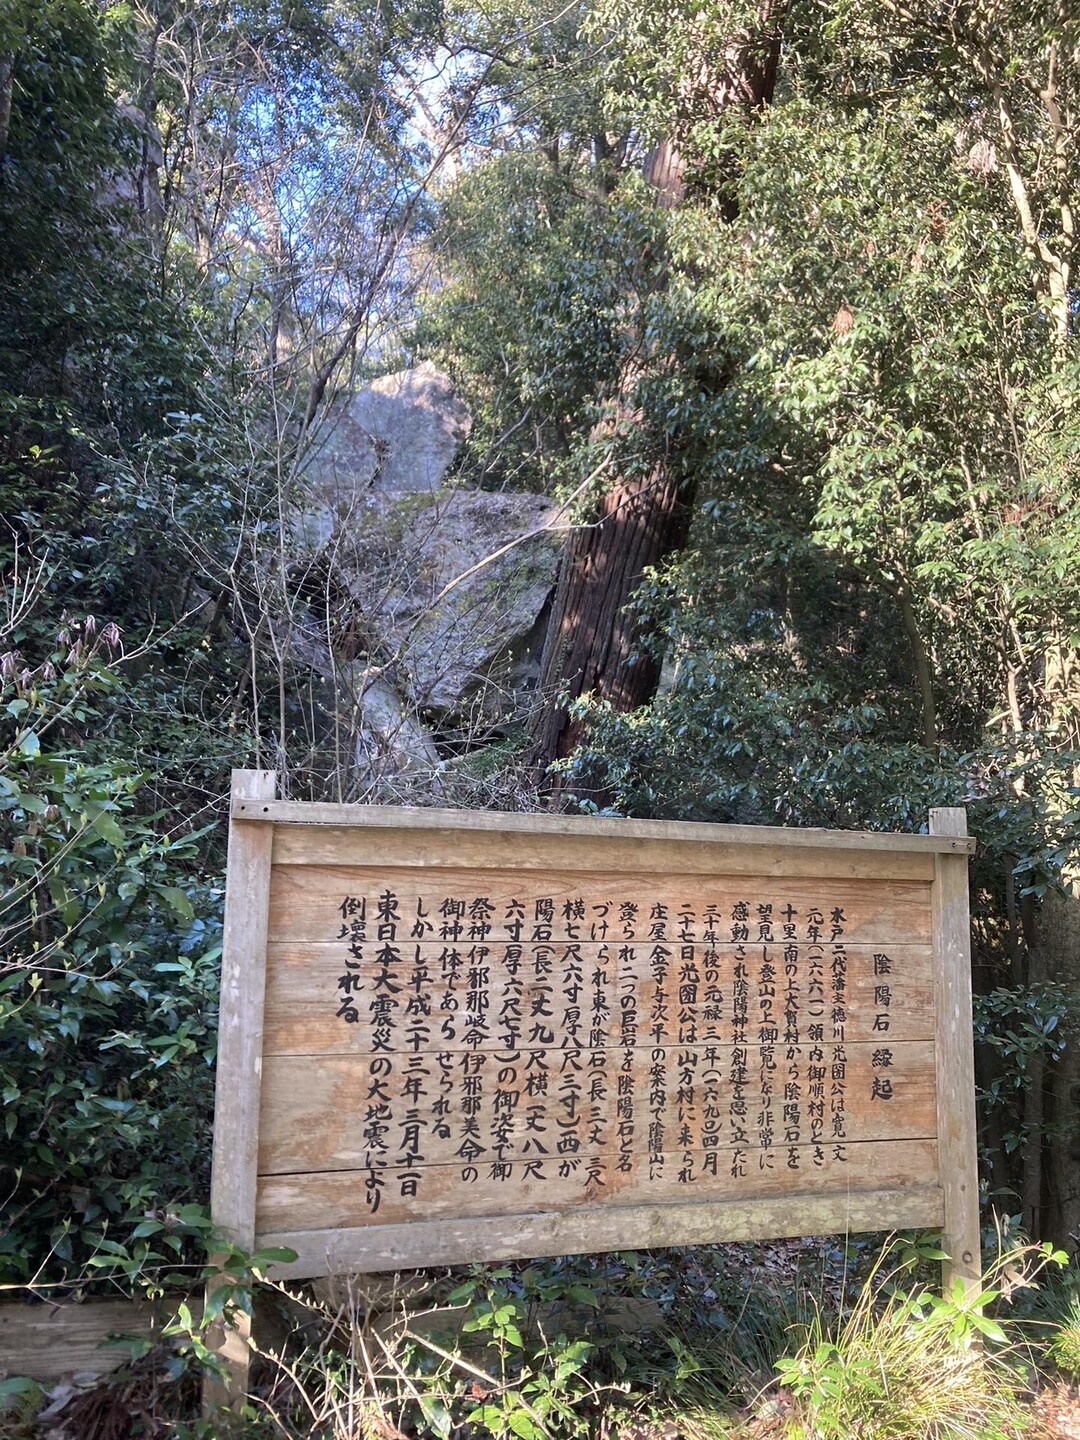 陰陽石縁起
水戸二代藩主徳川光圀公は寛文
元年(一六六一)領内御順村のとき
十里南の上大賀村から陰陽石を
望見し登山の上御覧になり非常に
感動され陰陽神社創建を思い立たれ
三十年後の元禄三年(一六九〇)四月
二十七日光圀公は山方村に来られ
庄屋金子与次平の案内で陰陽山に
登られ二つの巨岩を陰陽石と名
づけられ東が陰石(長三丈三尺
横七尺六寸厚八尺三寸)西が
陽石(長二丈九尺横一丈八尺
六寸厚六尺七寸)の御姿で御
祭神伊邪那岐命伊邪那美命の
御神体であらせられる
しかし平成二十三年三月十一日
東日本大震災の大地震により
倒壊される